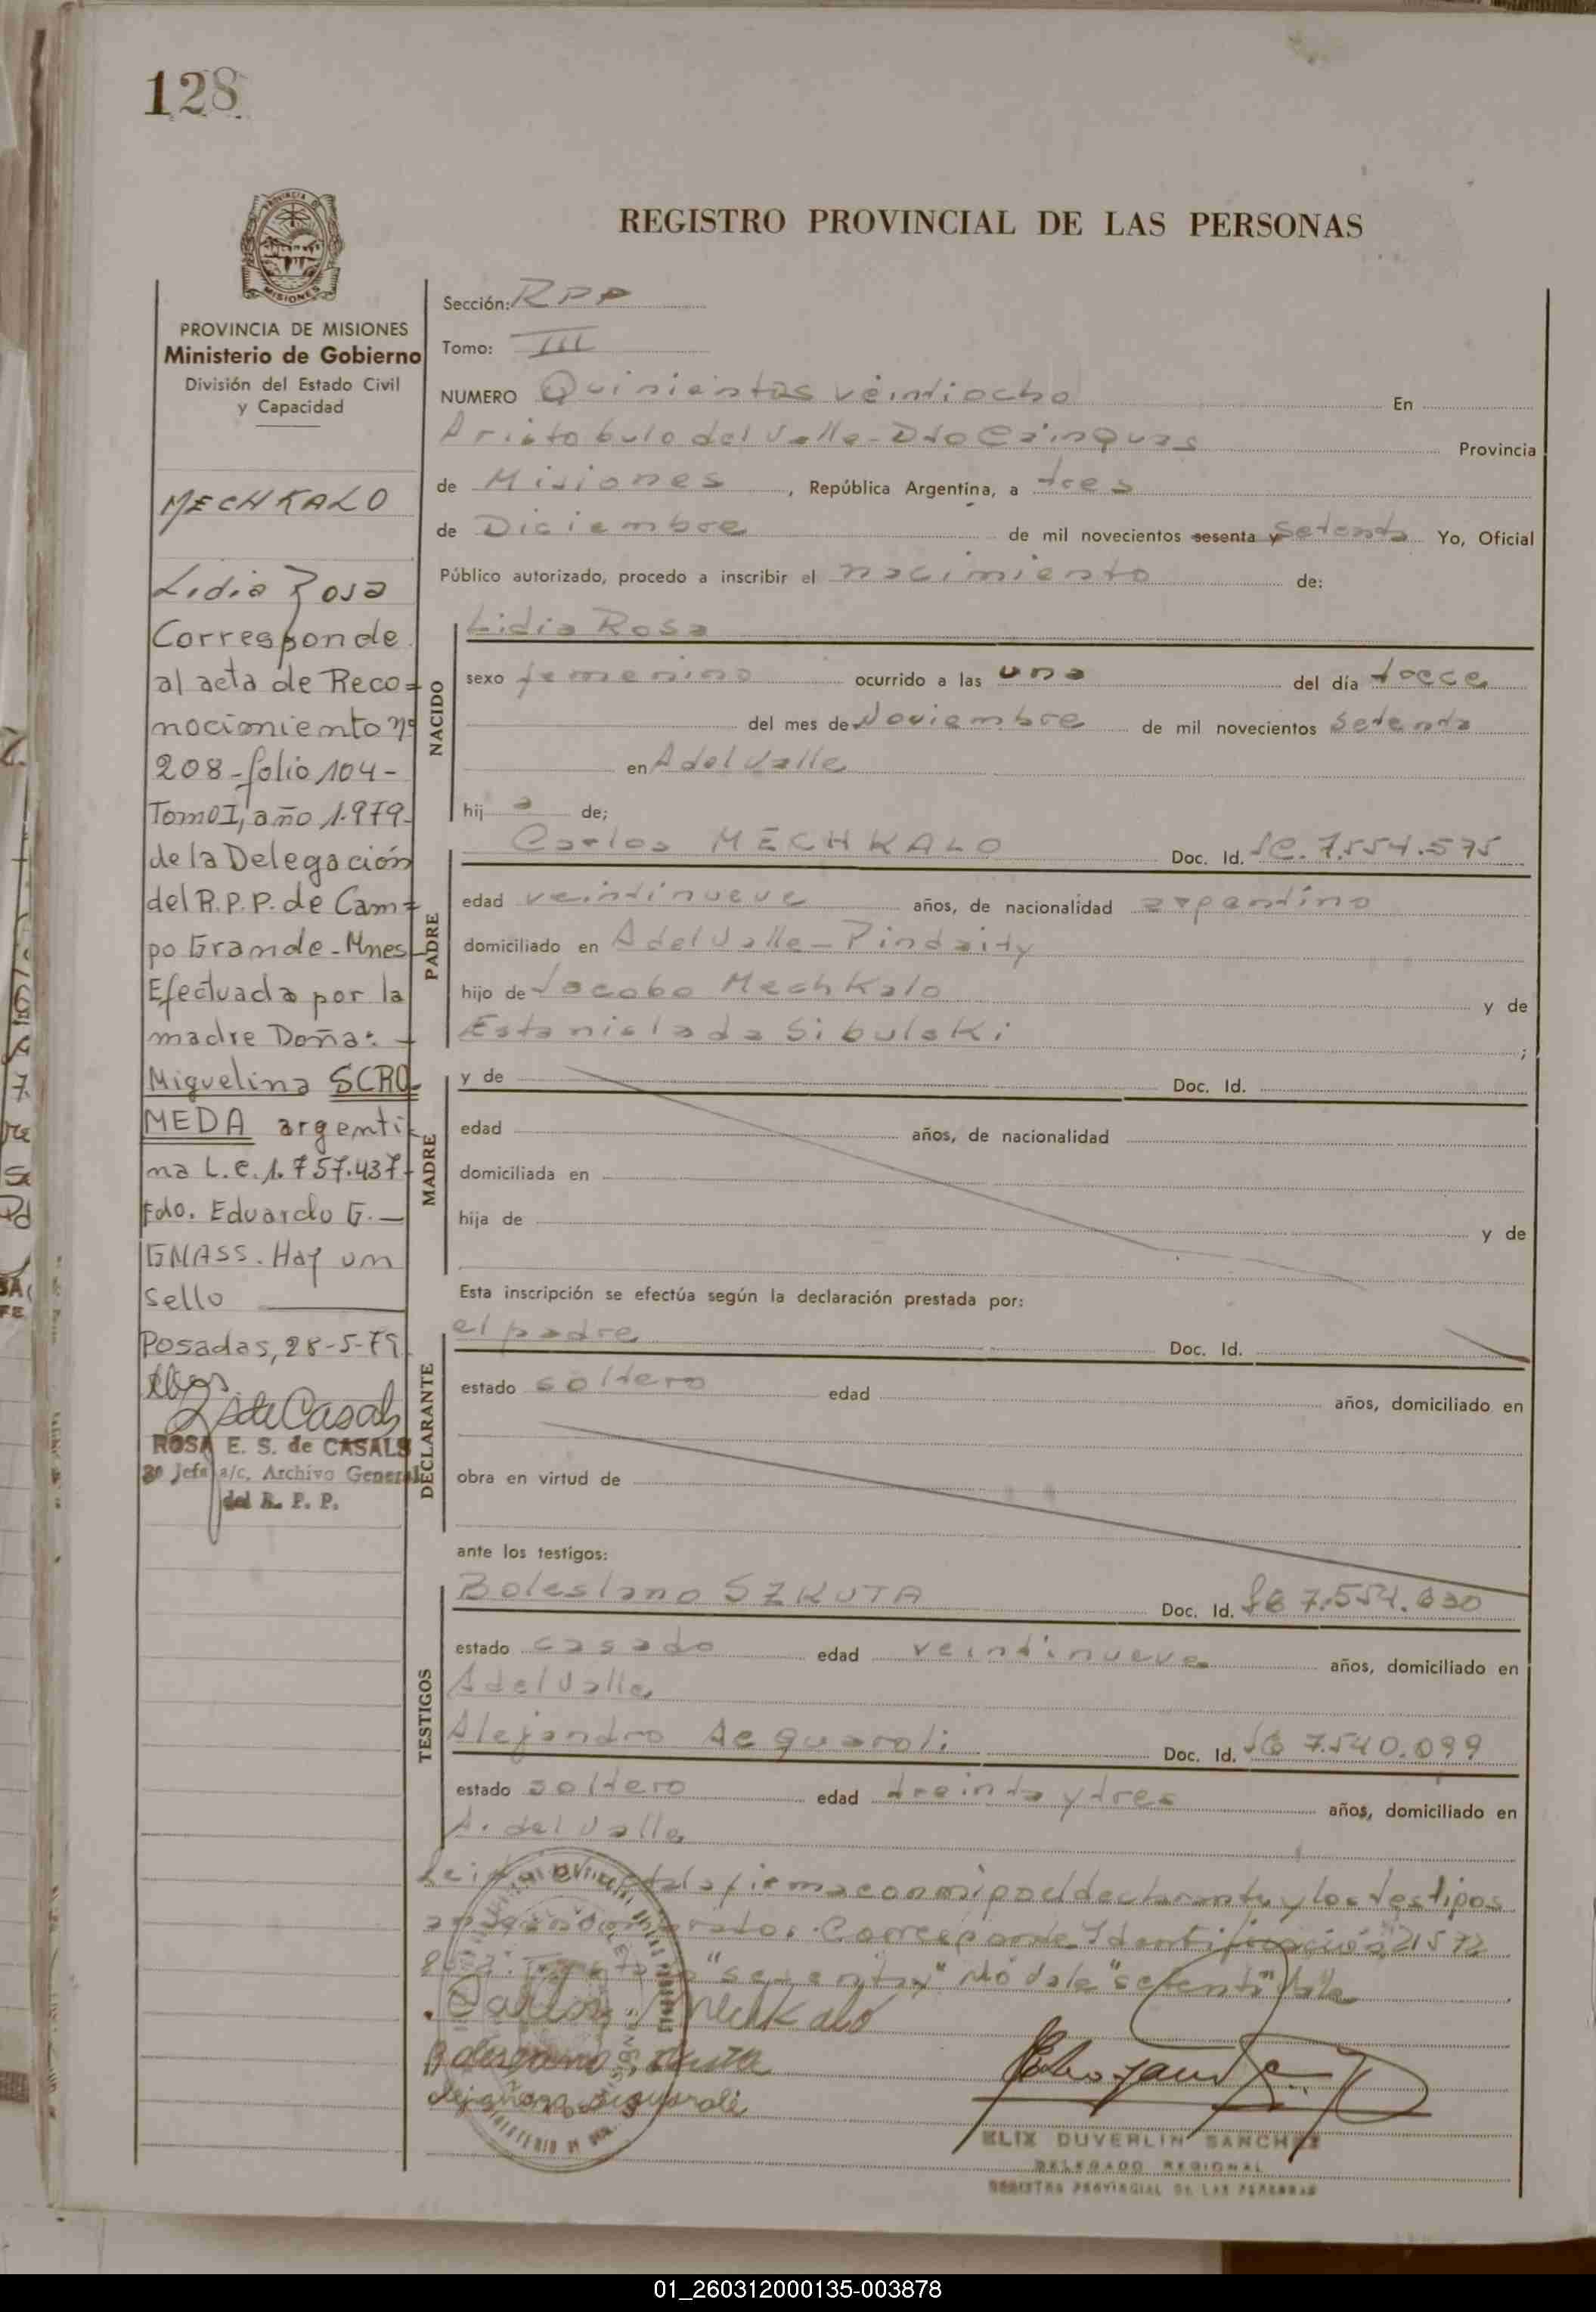 128
REGISTRO PROVINCIAL DE LAS PERSONAS
PROVINCIA DE MISIONES
Ministerio de Gobierno
División del Estado Civil
y Capacidad
MECHKALO
Lidia Rosa
Corresponde
al acta de Reco=
nocimiento nº
208-folio 104-
Tomo I, año 1.979-
de la Delegación
del R.P.P. de Cam=
po Grande-Mnes-
Efectuada por la
madre Doña: -
Miguelina SCRO
MEDA argenti
na L.C. 1.757.437-
Fdo. Eduardo G. -
GNASS. Hay un
sello
Posadas, 28-5-79
ROSA E. S. de CASALS
2º Jefe a/c. Archivo General
del R. P. P.
Sección: RPP
Tomo: III
NUMERO Quinientos veintiocho En
Aristobulo del Valle-Dto Cainguas Provincia
de Misiones, República Argentina, a tres
de Diciembre de mil novecientos sesenta y setenta Yo, Oficial
Público autorizado, procedo a inscribir el nacimiento de:
NACIDO
Lidia Rosa
sexo femenino ocurrido a las una del día trece
del mes de Noviembre de mil novecientos setenta
en A del Valle
hij a de;
PADRE
Carlos MECHKALO Doc. Id. 7.554.575
edad veintinueve años, de nacionalidad argentino
domiciliado en A del Valle - Pindaity
hijo de Jacobo Mechkalo y de
Estanislada Sibulski ;
MADRE
y de Doc. Id.
edad años, de nacionalidad
domiciliada en
hija de y de
Esta inscripción se efectúa según la declaración prestada por:
DECLARANTE
el padre Doc. Id.
estado soltero edad años, domiciliado en
obra en virtud de
ante los testigos:
TESTIGOS
Boleslano SZKUTA Doc. Id. 7.554.630
estado casado edad veintinueve años, domiciliado en
A del Valle
Alejandro Acquaroli Doc. Id. 7.540.099
estado soltero edad treinta y tres años, domiciliado en
A. del Valle
Leida el acta la firma conmigo el declarante y los testigos
Corresponde Identificación 21572
"setenta" Vale
Carlos Mechkalo
ELIX DUVERLIN SANCHEZ
DELEGADO REGIONAL
REGISTRO PROVINCIAL DE LAS PERSONAS
01_260312000135-003878